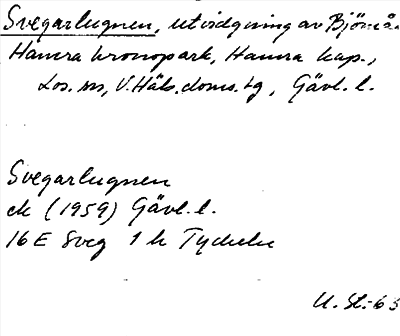 Svegarlugnen, utvidgning av Björnån
Hamra kronopark, Hamra kap.,
Los. sn, V. Häls. doms. tg, Gävl. l.
Svegarlugnen
ek (1959) Gävl. l.
16 E Sveg 1 h
U. St. -63